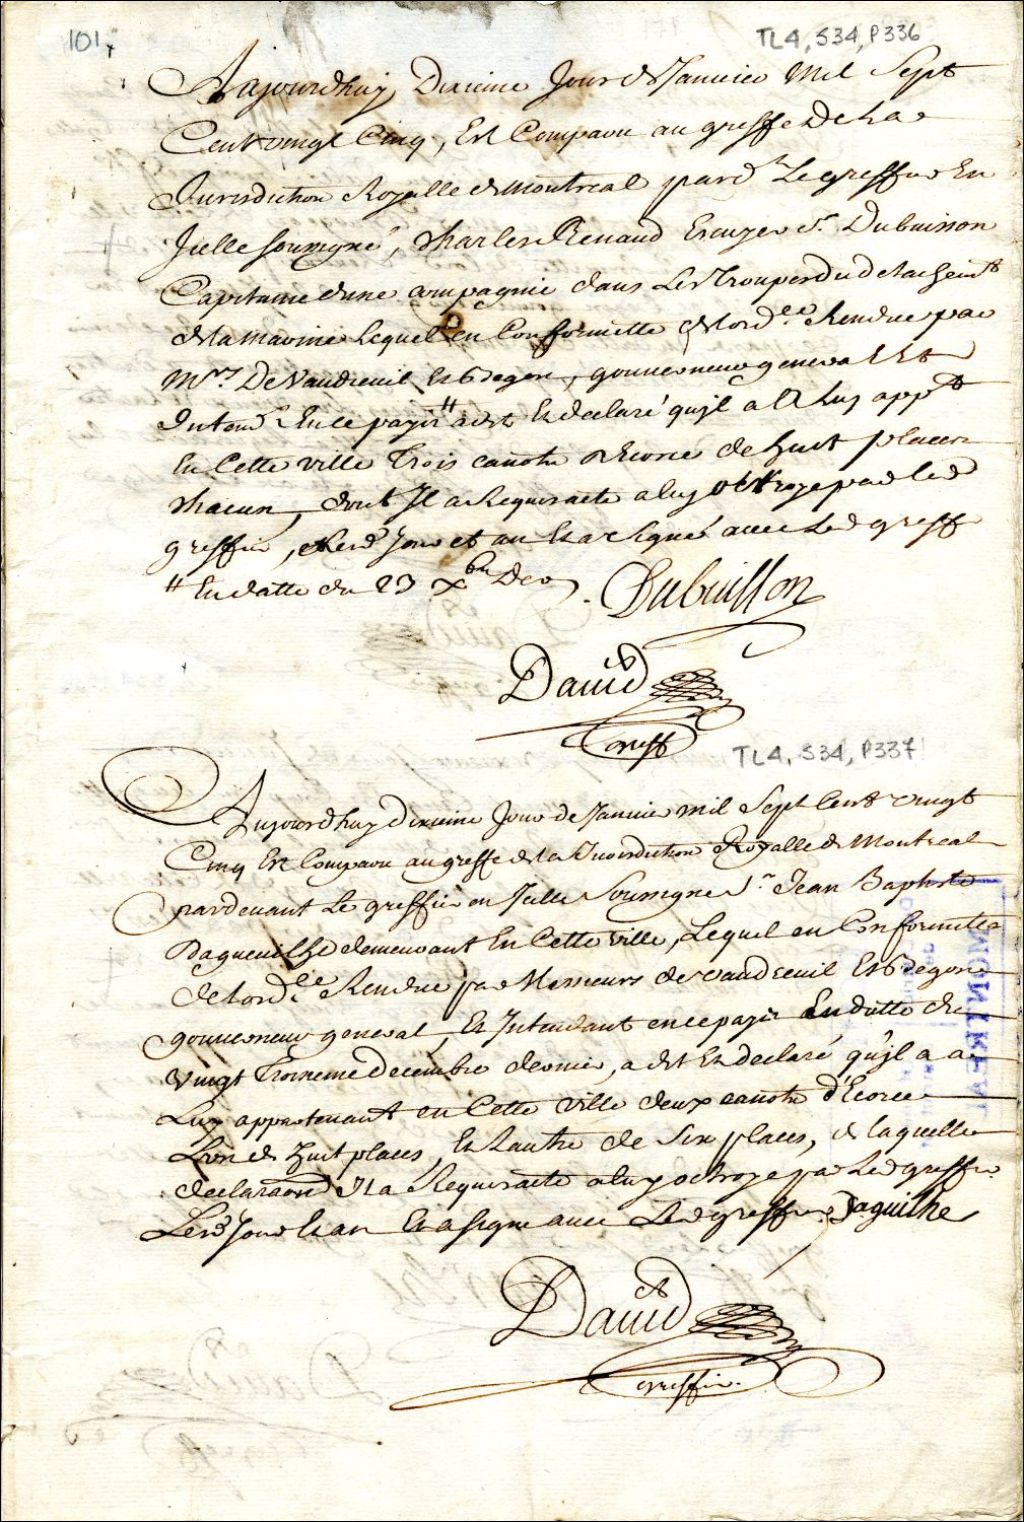 101
TL4, S34, P336
Aujourdhuy Dixieme Jour de Janvier Mil Sept
Cent vingt Cinq, Est Comparu au greffe De La
Jurisdiction Royalle de Montreal pard.t Le greffier En
Jcelle soussigné, Charles Renaud Escuyer Sr Dubuisson
Capitaine dune compagnie dans Les Trouppes du detachem.t
de la marine Lequel en Conformitté de Lord.ce Rendue par
Mrs De Vaudreuil Et Begon, gouverneur general Et
Jntend.t En ce payis // a dit Et declaré qu'jl a A Luy app.t
En Cette ville Trois canots d'Ecorce de huit places
chacun, dont Jl a Requis acte a luy octroyé par led
greffier, Lesd Jour et an Et a signé avec Led greff
// En datte du 23 Xbre Der
Dubuisson
David
Greff
TL4, S34, P337
Aujourdhuy dixieme Jour de Janvier mil Sept Cent vingt
Cinq Est Comparu au greffe de la Jurisdiction Royalle de Montreal
pardevant Le greffier en Jcelle Soussigné Sr Jean Baptiste
Dagueilhe demeurant En Cette ville, Lequel en Conformitté
de Lord.ce Rendue par Messieurs de Vaudreuil Et Begon
gouverneur general, Et Jntendant en ce payis En datte du
vingt Troisieme Decembre dernier, a dit Et declaré qu'jl a a
Luy appartenant en Cette ville deux canots d'Ecorce
L'un de huit places, Et Lautre de Six places, de laquelle
declaraon Jl a Requis acte a luy octroyé par Led greffier
Lesd Jour Et an Et a signé avec Led greffier. Daguilhe
MONTREAL
David
Greffier.